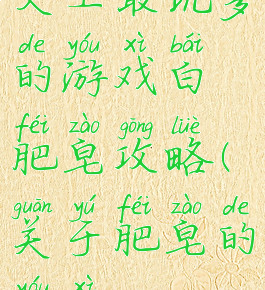 de yóu xì bái
的游戏白
féi zào gōng lüè
肥皂攻略(
guān yú féi zào de
关于肥皂的
yóu xì